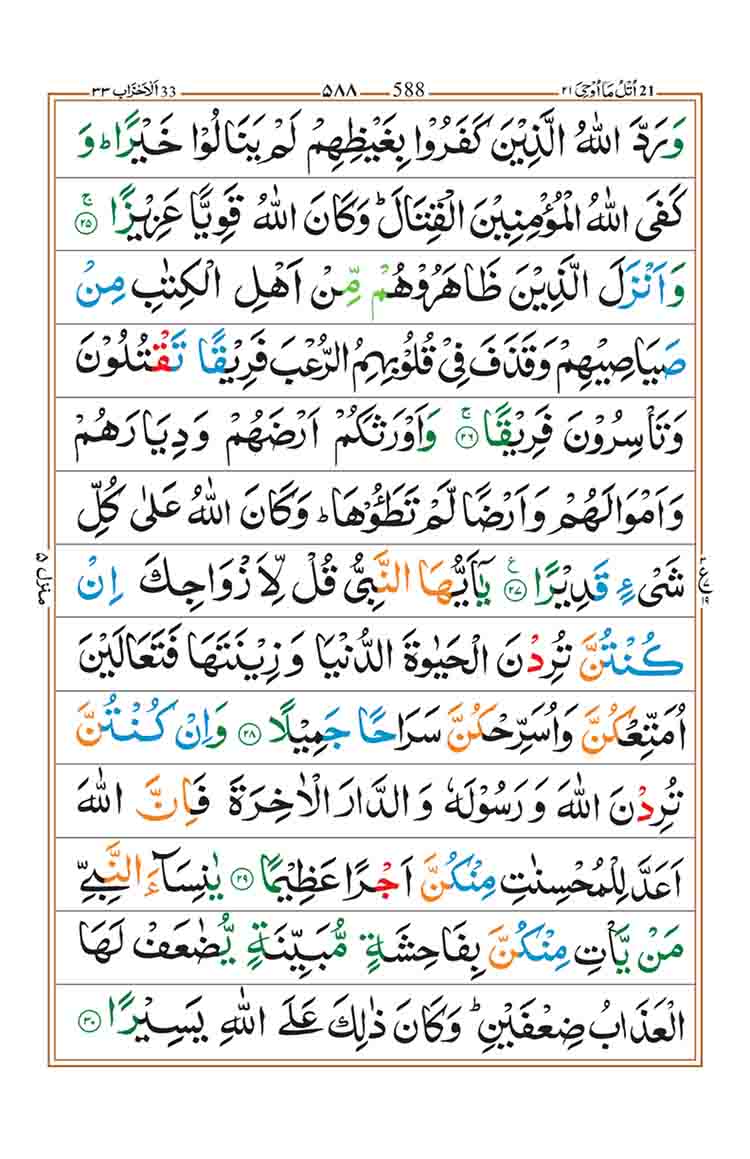 21 اُتْلُ مَاۤ اُوْحِیَ ۲۱ 588 ۵۸۸ 33 اَلْاَحْزَاب ۳۳
وَرَدَّ اللّٰهُ الَّذِیْنَ كَفَرُوْا بِغَیْظِهِمْ لَمْ یَنَالُوْا خَیْرًا ؕ وَ
كَفَی اللّٰهُ الْمُؤْمِنِیْنَ الْقِتَالَ ؕ وَكَانَ اللّٰهُ قَوِیًّا عَزِیْزًا ۚ ۲۵
وَاَنْزَلَ الَّذِیْنَ ظَاهَرُوْهُمْ مِّنْ اَهْلِ الْكِتٰبِ مِنْ
صَیَاصِیْهِمْ وَقَذَفَ فِیْ قُلُوْبِهِمُ الرُّعْبَ فَرِیْقًا تَقْتُلُوْنَ
وَتَاْسِرُوْنَ فَرِیْقًا ۚ ۲۶ وَاَوْرَثَكُمْ اَرْضَهُمْ وَدِیَارَهُمْ
وَاَمْوَالَهُمْ وَاَرْضًا لَّمْ تَطَـُٔوْهَا ؕ وَكَانَ اللّٰهُ عَلٰی كُلِّ
شَیْءٍ قَدِیْرًا ۧ ۲۷ یٰۤاَیُّهَا النَّبِیُّ قُلْ لِّاَزْوَاجِكَ اِنْ
كُنْتُنَّ تُرِدْنَ الْحَیٰوةَ الدُّنْیَا وَزِیْنَتَهَا فَتَعَالَیْنَ
اُمَتِّعْكُنَّ وَاُسَرِّحْكُنَّ سَرَاحًا جَمِیْلًا ۲۸ وَاِنْ كُنْتُنَّ
تُرِدْنَ اللّٰهَ وَرَسُوْلَهٗ وَالدَّارَ الْاٰخِرَةَ فَاِنَّ اللّٰهَ
اَعَدَّ لِلْمُحْسِنٰتِ مِنْكُنَّ اَجْرًا عَظِیْمًا ۲۹ یٰنِسَآءَ النَّبِیِّ
مَنْ یَّاْتِ مِنْكُنَّ بِفَاحِشَةٍ مُّبَیِّنَةٍ یُّضٰعَفْ لَهَا
الْعَذَابُ ضِعْفَیْنِ ؕ وَكَانَ ذٰلِكَ عَلَی اللّٰهِ یَسِیْرًا ۳۰
منزل ۵